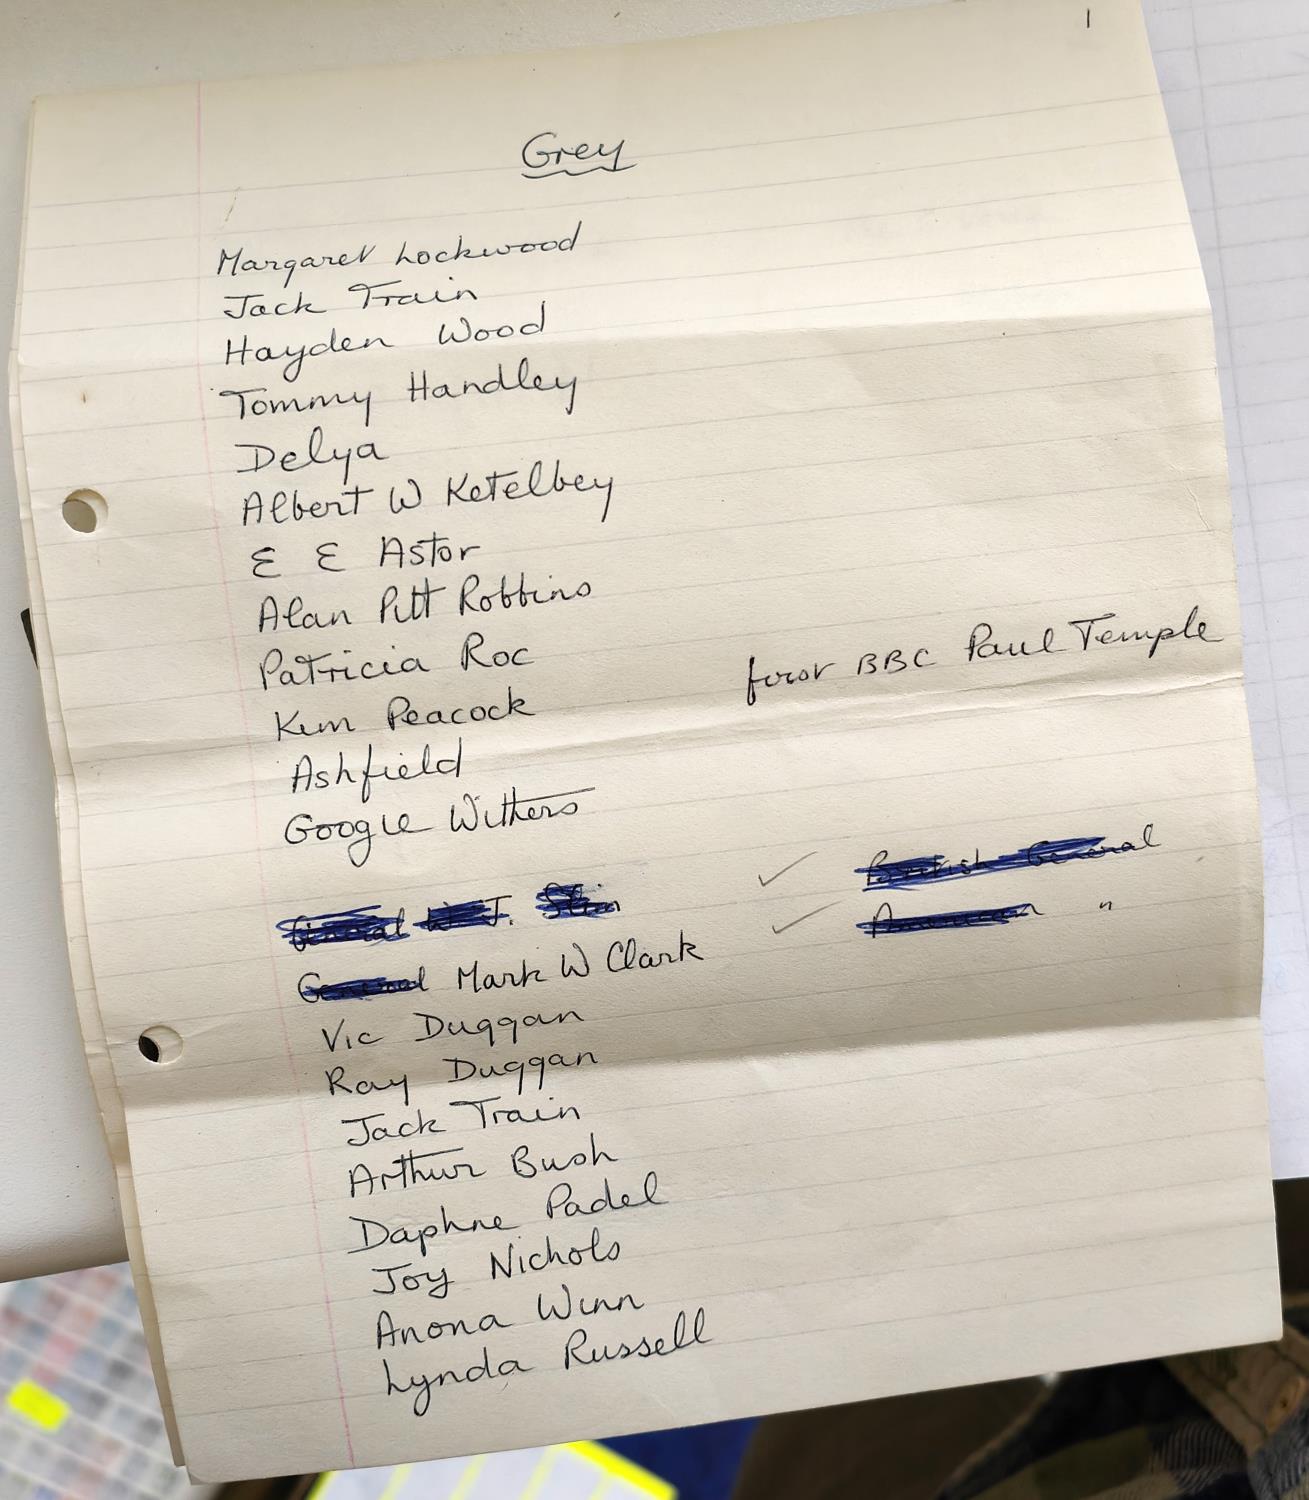 1
Grey
Margaret Lockwood
Jack Train
Hayden Wood
Tommy Handley
Delya
Albert W Ketelbey
E E Astor
Alan Pitt Robbins
Patricia Roc
Kim Peacock first BBC Paul Temple
Ashfield
Googie Withers
General W J. Slim ✓ British General
General Mark W Clark ✓ American "
Vic Duggan
Ray Duggan
Jack Train
Arthur Bush
Daphne Padel
Joy Nichols
Anona Winn
Lynda Russell